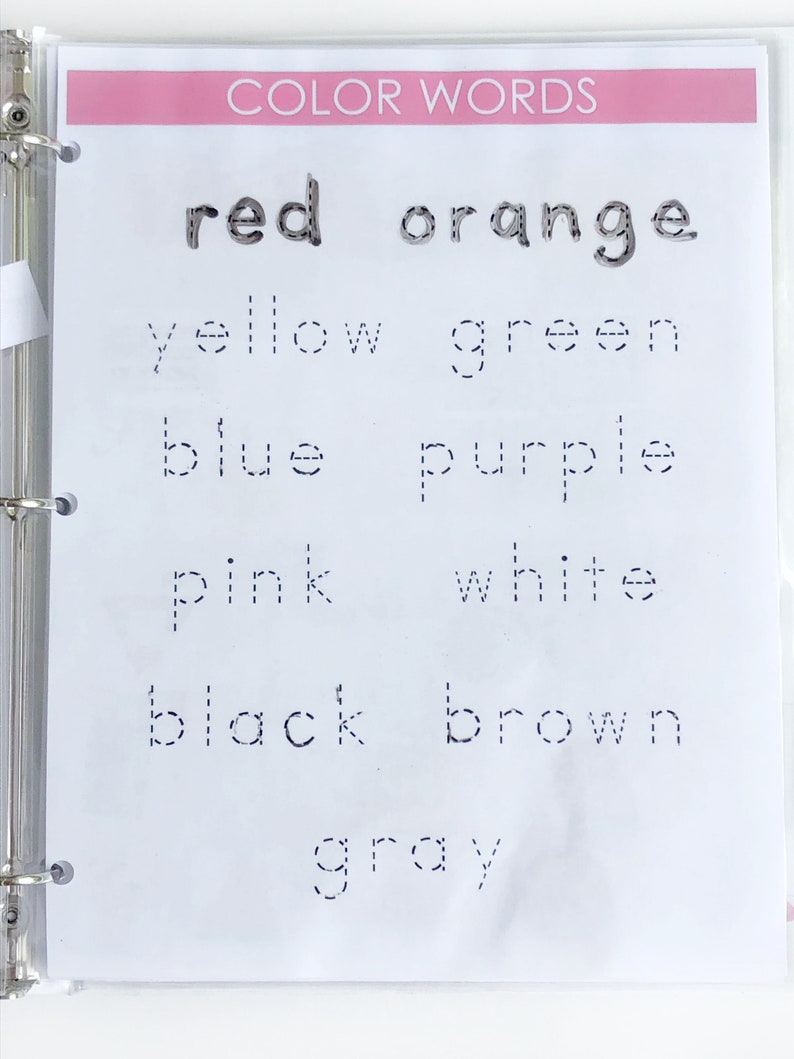 COLOR WORDS
red orange
yellow green
blue purple
pink white
black brown
gray